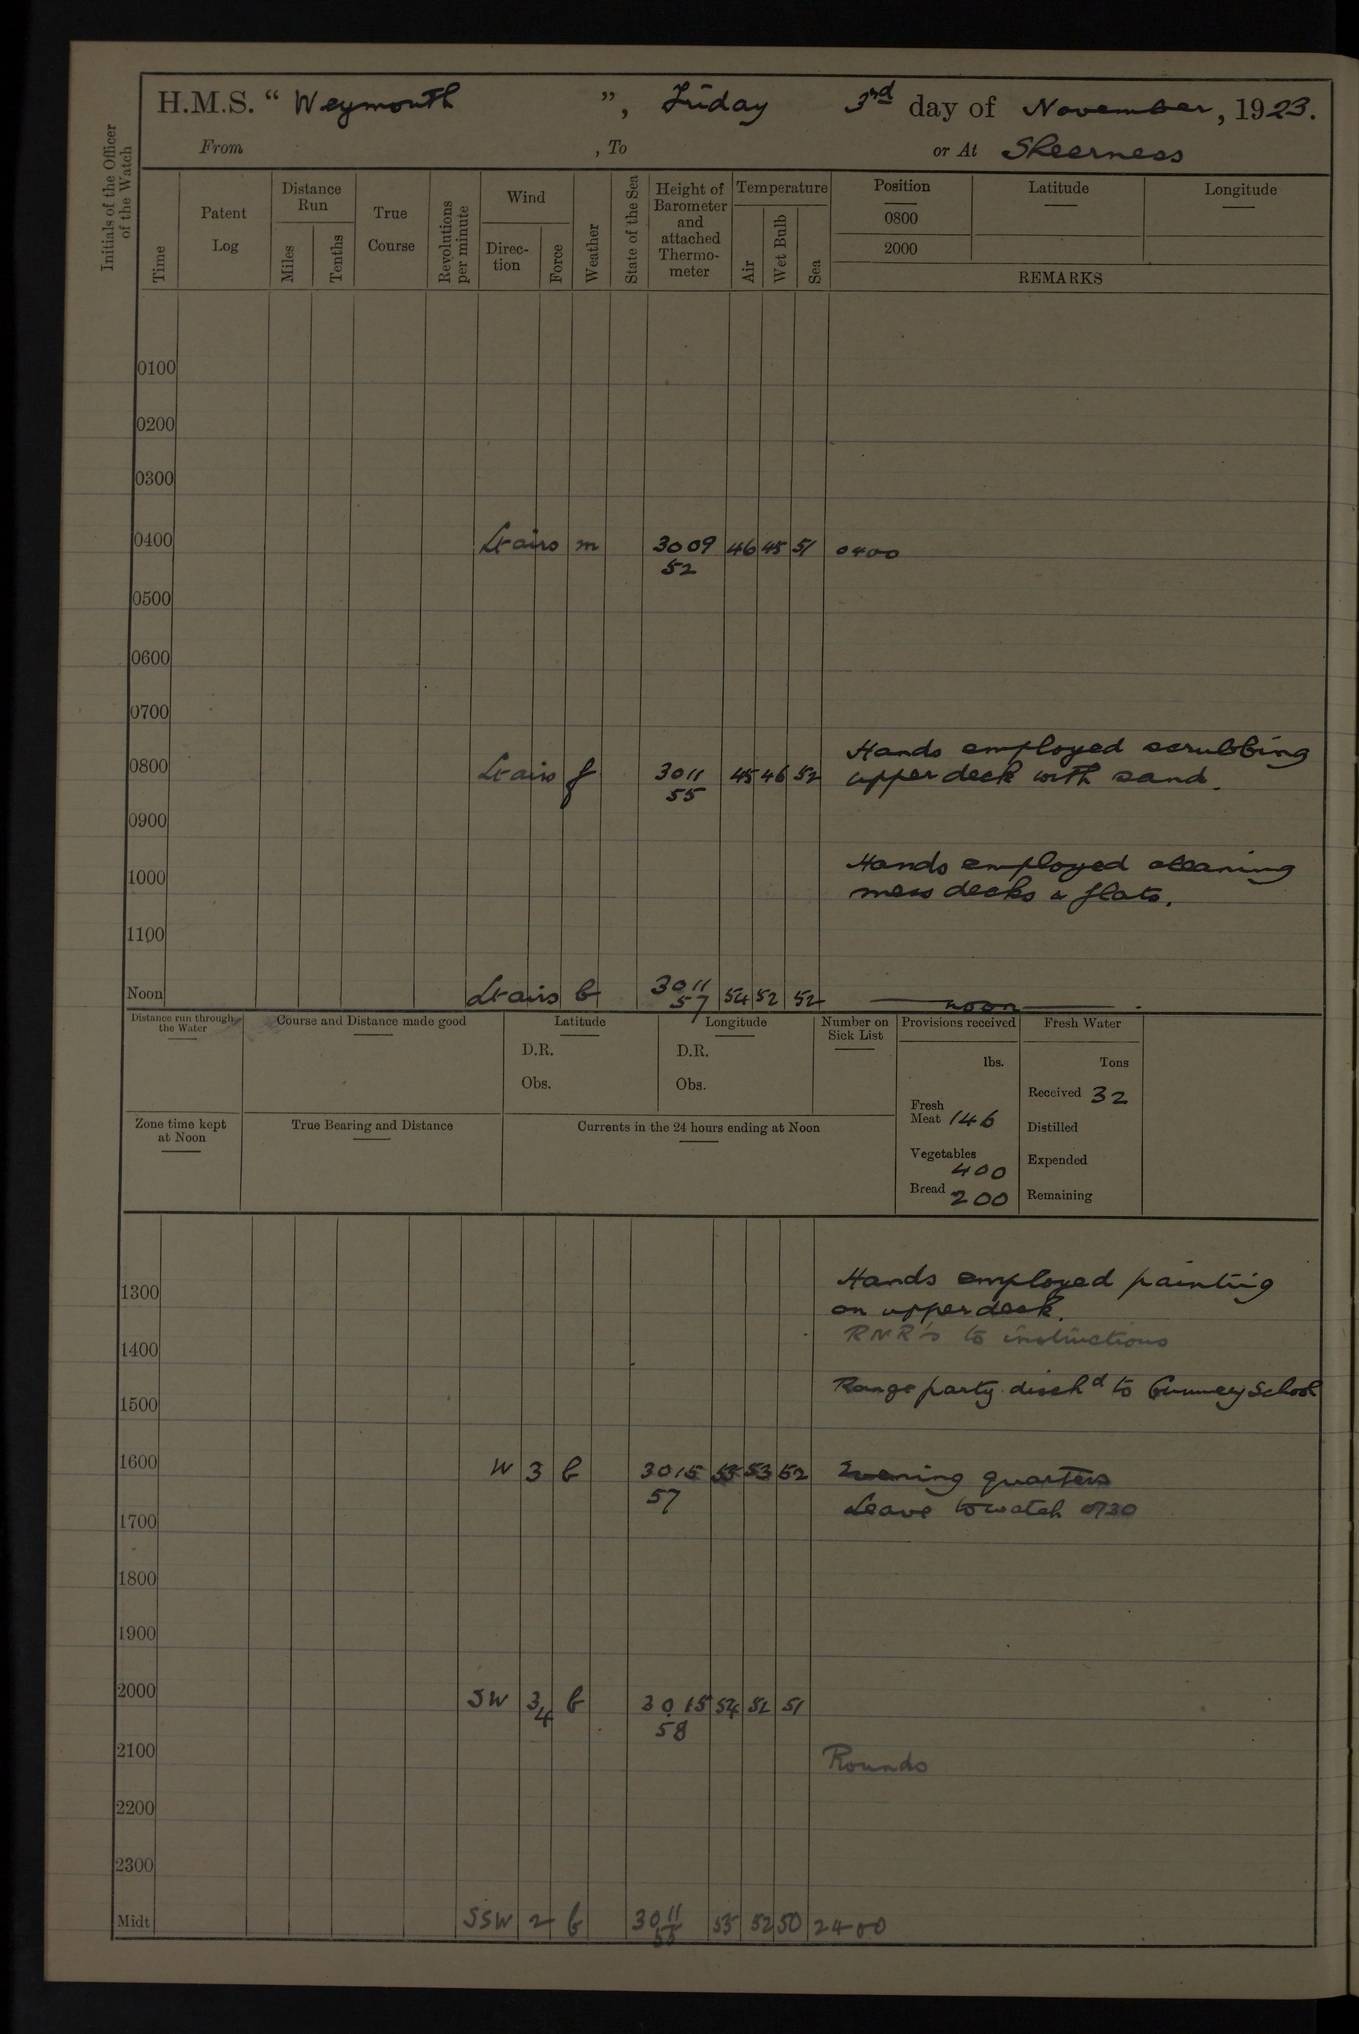 H.M.S. “ Weymouth ”, Friday 3rd day of November, 1923.
From , To or At Sheerness
Initials of the Officer of the Watch
Time
Patent Log
Distance Run
Miles
Tenths
True Course
Revolutions per minute
Wind
Direction
Force
Weather
State of the Sea
Height of Barometer and attached Thermometer
Temperature
Air
Wet Bulb
Sea
Position
0800
2000
Latitude
Longitude
REMARKS
0100
0200
0300
0400 Lt airs m 3009 46 45 51 0400
52
0500
0600
0700
Hands employed scrubbing
0800 Lt airs f 3011 45 46 52 upper deck with sand.
55
0900
Hands employed cleaning
1000 mess decks & flats.
1100
Noon Lt airs b 3011 54 52 52 noon
57
Distance run through the Water
Course and Distance made good
Latitude
D.R.
Obs.
Longitude
D.R.
Obs.
Number on Sick List
Provisions received
lbs.
Fresh Meat 146
Vegetables 400
Bread 200
Fresh Water
Tons
Received 32
Distilled
Expended
Remaining
Zone time kept at Noon
True Bearing and Distance
Currents in the 24 hours ending at Noon
Hands employed painting
1300 on upper deck.
RNR's to instructions
1400
Range party disch d to Gunnery School
1500
1600 W 3 b 3015 55 53 52 Evening quarters
57 Leave to watch 0730
1700
1800
1900
2000 SW 3/4 b 3015 54 52 51
58
2100 Rounds
2200
2300
Midt SSW 2 b 3011 53 52 50 2400
55